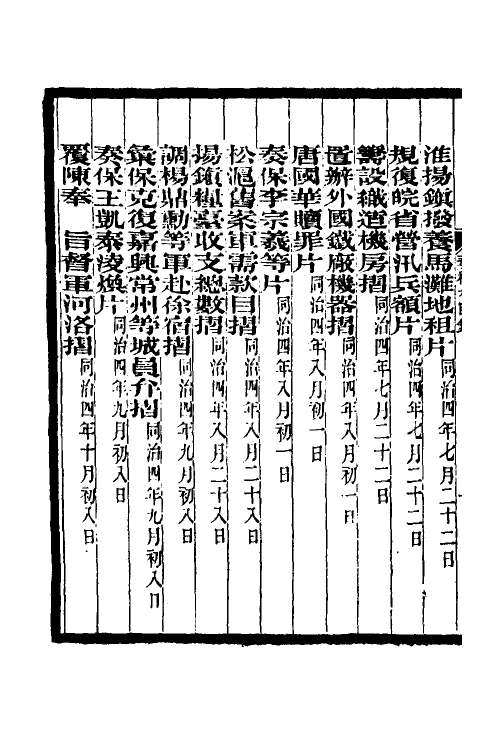 淮揚鎮撥養馬灘地租片同治四年七月二十二日
規復皖省營汛兵額片同治四年七月二十二日
籌設織造機房摺同治四年七月二十二日
置辦外國鐵廠機器摺同治四年八月初一日
唐國華贖罪片同治四年八月初一日
奏保李宗羲等片同治四年八月初一日
松滬舊案軍需款目摺同治四年八月二十八日
揚鎮糧臺收支總數摺同治四年八月二十八日
調楊鼎勳等軍赴徐宿摺同治四年九月初八日
彙保克復嘉興常州等城員弁摺同治四年九月初八日
奏保王凱泰凌煥片同治四年九月初八日
覆陳奉　旨督軍河洛摺同治四年十月初八日